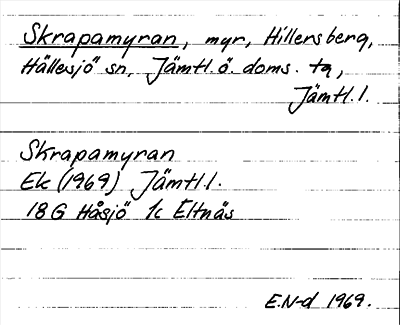 Skrapamyran, myr, Hillersberg,
Hällesjö sn, Jämtl.ö. doms. tg,
Jämtl.l.
Skrapamyran
Ek (1969) Jämtl.l.
18G Håsjö 1c Eltnäs
E.N-d 1969.